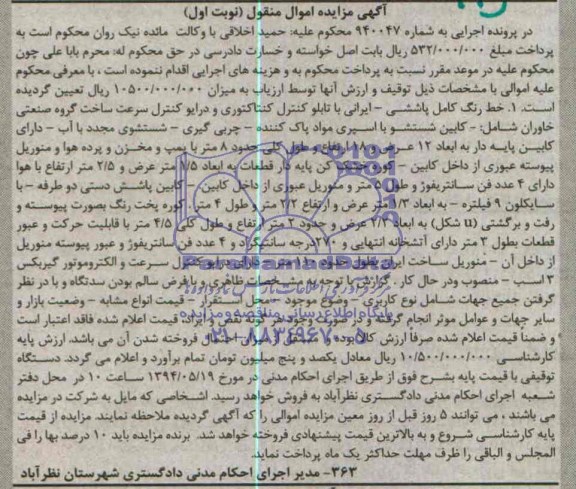 آگهی مزایده اموال منقول (نوبت اول)
در پرونده اجرایی به شماره ۹۴۰۰۴۷ محکوم علیه: حمید اخلاقی با وکالت مائده نیک روان محکوم است به
پرداخت مبلغ ۵۳۲/۰۰۰/۰۰۰ ریال بابت اصل خواسته و خسارت دادرسی در حق محکوم له: محرم بابا علی چون
محکوم علیه در موعد مقرر نسبت به پرداخت محکوم به و هزینه های اجرایی اقدام ننموده است ، با معرفی محکوم
علیه اموالی با مشخصات ذیل توقیف و ارزش آنها توسط ارزیاب به میزان ۱۰۵۰۰/۰۰۰/۰۰۰ ریال تعیین گردیده
است. ۱. خط رنگ کامل پاششی - ایرانی با تابلو کنترل کنتاکتوری و درایو کنترل سرعت ساخت گروه صنعتی
خاوران شامل: - کابین شستشو با اسپری مواد پاک کننده - چربی گیری - شستشوی مجدد با آب - دارای
کابین پایه دار به ابعاد ۱۲ عرض و ۱/۸ ارتفاع و طول کلی حدود ۸ متر با پمپ و مخزن و پرده هوا و منوریل
پیوسته عبوری از داخل کابین - کوره خشک کن پایه دار قطعات به ابعاد متر عرض و ۲/۵ متر ارتفاع با هوا
دارای ۴ عدد فن سانتریفوژ و طول متر و منوریل عبوری از داخل کابین - کابین پاشش دستی دو طرفه - با
سایکلون ۹ فیلتره - به ابعاد ۱/۳ متر عرض و ارتفاع ۲/۲ متر و طول ۴ متر کوره پخت رنگ بصورت پیوسته و
رفت و برگشتی (u شکل) به ابعاد ۲/۳ عرض و حدود ۲ متر ارتفاع و طول کلی ۴/۵ متر با قابلیت حرکت و عبور
قطعات بطول ۳ متر دارای آتشخانه انتهایی و ۲۷۰ درجه سانتیگراد و ۴ عدد فن سانتریفوژ و عبور پیوسته منوریل
از داخل آن - منوریل ساخت ایران بطول حدود متر دارای درایو کنترل سرعت و الکتروموتور گیربکس
۳ اسب - منصوب ودر حال کار . گزارش با توجه به مشخصات ظاهری با فرض سالم بودن دستگاه و با در نظر
گرفتن جمیع جهات شامل نوع کاربری - وضوع موجود - محل استقرار - قیمت انواع مشابه - وضعیت بازار و
سایر جهات و عوامل موثر انجام گرفته و در صورت وجود هر گونه نقص و ایراد، قیمت اعلام شده فاقد اعتبار است
و ضمناً قیمت اعلام شده صرفاً ارزش کالا بوده و مستقل از میزان احتمال فروخته شدن آن می باشد. ارزش پایه
کارشناسی ۱۰/۵۰۰/۰۰۰/۰۰۰ ریال معادل یکصد و پنج میلیون تومان تمام برآورد و اعلام می گردد. دستگاه
توقیفی با قیمت پایه بشرح فوق از طریق اجرای احکام مدنی در مورخ ۱۳۹۴/۰۵/۱۹ ساعت ۱۰ در محل دفتر
شعبه اجرای احکام مدنی دادگستری نظرآباد به فروش خواهد رسید. اشخاصی که مایل به شرکت در مزایده
می باشند ، می توانند ۵ روز قبل از روز معین مزایده اموالی را که آگهی گردیده ملاحظه نمایند. مزایده از قیمت
پایه کارشناسی شروع و به بالاترین قیمت پیشنهادی فروخته خواهد شد. برنده مزایده باید ۱۰ درصد بها را فی
المجلس و الباقی را ظرف مهلت حداکثر یک ماه پرداخت نماید.
۳۶۳- مدیر اجرای احکام مدنی دادگستری شهرستان نظرآباد
ParsNamadData
پایگاه اطلاع رسانی مناقصه و مزایده
۰۲۱-۸۸۳۴۹۶۷۰-۵